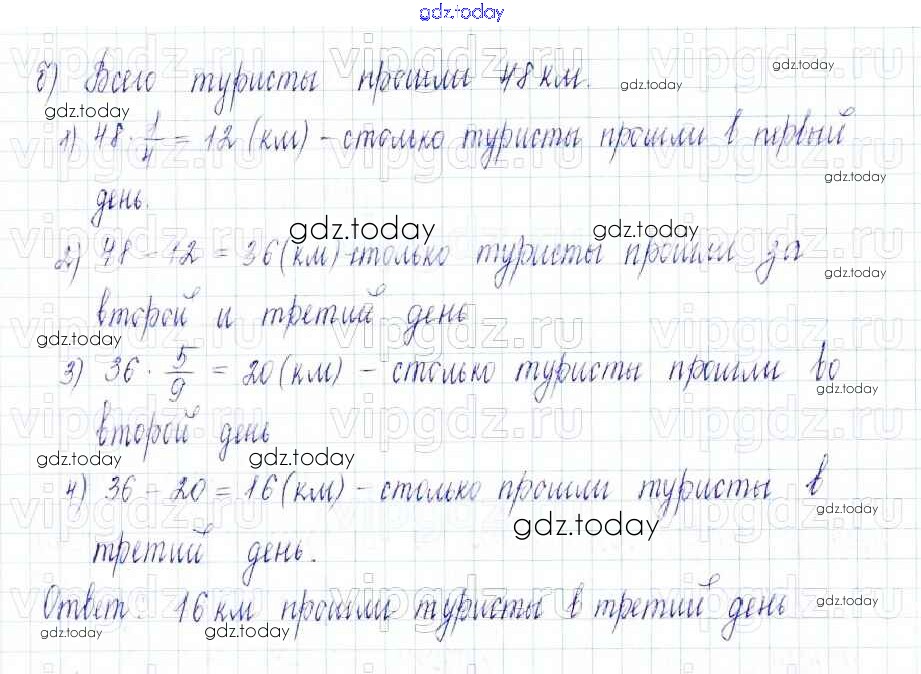 gdz.today
б) Всего туристы прошли 48 км.
1) 48 · 1/4 = 12 (км) – столько туристы прошли в первый
день.
2) 48 – 12 = 36 (км) – столько туристы прошли за
второй и третий день
3) 36 · 5/9 = 20 (км) – столько туристы прошли во
второй день
4) 36 – 20 = 16 (км) – столько прошли туристы в
третий день.
Ответ: 16 км прошли туристы в третий день